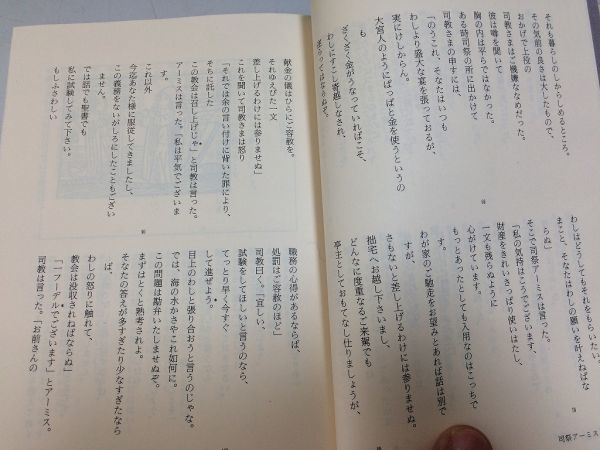 それも暮らしのしからしめるところ。
その気前の良さは大したもので、
おかげで上役の
司教さまはご機嫌ななめだった。
彼は噂を聞いて
胸の内は平らではなかった。
ある時司祭の所に出かけて
司教さまの申すには、
「のうこれ、そなたはいつも
わしより盛大な宴を張っておるが、
実にけしからん。
大宮人のようにぱっぱと金を使うというの
も
ざくざく金がうなっていればこそ、
わしにすこし寄越しなされ、
逆らってはなりませぬぞ。
わしはどうしてもそれをもらいたい。
まこと、そなたはわしの願いを叶えねばな
らぬ」
そこで司祭アーミスは言った。
「私の気持はこうでございます、
財産をきれいさっぱり使いはたし、
一文も残らぬように
心がけています。
もっとあったとしても入用なのはこっちで
さもないと差し上げるわけには参りませぬ。
わが家のご馳走をお望みとあれば話は別で
すが、
拙宅へお越し下さいまし、
どんなに度重なるご来駕でも
亭主としておもてなし仕りましょうが、
司祭アーミス
献金の儀はひらにご容赦を。
それゆえびた一文
差し上げるわけには参りませぬ」
これを聞いて司教さまは怒り
「それでは余の言い付けに背いた罪により、
そちに託した
この教会は召し上げじゃ」と司教は言った。
アーミスは言った。「私は平気でございま
す。
これ以外
今迄あなた様に服従してきましたし、
この義務をないがしろにしたこともござい
ません。
では話でも聖書でも
私に試験してみて下さい。
もしふさわしい
職務の心得があるならば、
処罰はご容赦のほど」
司教曰く。「宜しい、
試験をしてほしいと言うのなら、
てっとり早く今すぐ
して進ぜよう。
目上のわしと張り合おうと言うのじゃな。
では、海の水かさやこれ如何に。
この問題は勘弁いたしませぬぞ。
まずはとくと熟考されよ。
そなたの答えが多すぎたり少なすぎたなら
ば、
わしの怒りに触れて、
教会は没収されねばならぬ」
「一フーデルでございます」とアーミス。
司教は言った。「お前さんの